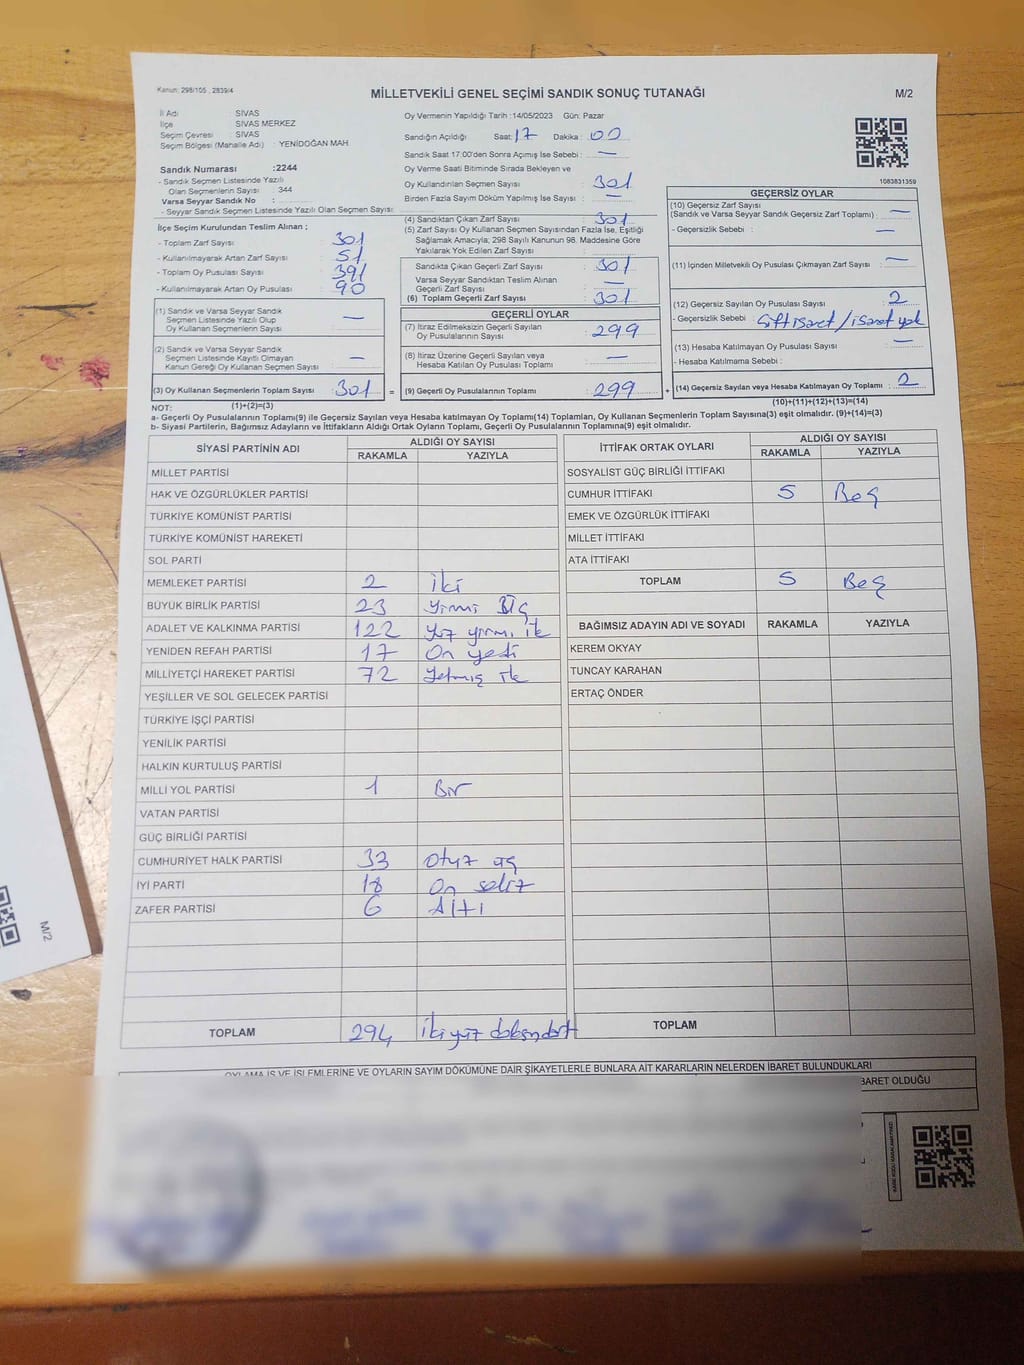 Kanun: 298/105 , 2839/4
MİLLETVEKİLİ GENEL SEÇİMİ SANDIK SONUÇ TUTANAĞI
M/2
İl Adı : SİVAS
İlçe : SİVAS MERKEZ
Seçim Çevresi : SİVAS
Seçim Bölgesi (Mahalle Adı) : YENİDOĞAN MAH
Sandık Numarası :2244
- Sandık Seçmen Listesinde Yazılı
Olan Seçmenlerin Sayısı : 344
Varsa Seyyar Sandık No :
- Seyyar Sandık Seçmen Listesinde Yazılı Olan Seçmen Sayısı:
İlçe Seçim Kurulundan Teslim Alınan ;
- Toplam Zarf Sayısı : 301
- Kullanılmayarak Artan Zarf Sayısı : 51
- Toplam Oy Pusulası Sayısı : 391
- Kullanılmayarak Artan Oy Pusulası : 90
(1) Sandık ve Varsa Seyyar Sandık
Seçmen Listesinde Yazılı Olup
Oy Kullanan Seçmenlerin Sayısı : —
(2) Sandık ve Varsa Seyyar Sandık
Seçmen Listesinde Kayıtlı Olmayan
Kanun Gereği Oy Kullanan Seçmen Sayısı : —
(3) Oy Kullanan Seçmenlerin Toplam Sayısı : 301 =
(1)+(2)=(3)
Oy Vermenin Yapıldığı Tarih :14/05/2023 Gün: Pazar
Sandığın Açıldığı Saat: 17 Dakika : 00
Sandık Saat 17:00'den Sonra Açımış İse Sebebi : —
Oy Verme Saati Bitiminde Sırada Bekleyen ve
Oy Kullandırılan Seçmen Sayısı : 301
Birden Fazla Sayım Döküm Yapılmış İse Sayısı : —
(4) Sandıktan Çıkan Zarf Sayısı : 301
(5) Zarf Sayısı Oy Kullanan Seçmen Sayısından Fazla İse, Eşitliği
Sağlamak Amacıyla; 298 Sayılı Kanunun 98. Maddesine Göre
Yakılarak Yok Edilen Zarf Sayısı :
Sandıkta Çıkan Geçerli Zarf Sayısı : 301
Varsa Seyyar Sandıktan Teslim Alınan
Geçerli Zarf Sayısı : —
(6) Toplam Geçerli Zarf Sayısı : 301
GEÇERLİ OYLAR
(7) İtiraz Edilmeksizin Geçerli Sayılan
Oy Pusulalarının Sayısı : 299
(8) İtiraz Üzerine Geçerli Sayılan veya
Hesaba Katılan Oy Pusulası Toplamı : —
(9) Geçerli Oy Pusulalarının Toplamı : 299 +
1083831359
GEÇERSİZ OYLAR
(10) Geçersiz Zarf Sayısı
(Sandık ve Varsa Seyyar Sandık Geçersiz Zarf Toplamı) : —
- Geçersizlik Sebebi : —
(11) İçinden Milletvekili Oy Pusulası Çıkmayan Zarf Sayısı : —
(12) Geçersiz Sayılan Oy Pusulası Sayısı : 2
- Geçersizlik Sebebi : Çift işaret / işaret yok
(13) Hesaba Katılmayan Oy Pusulası Sayısı : —
- Hesaba Katılmama Sebebi :
(14) Geçersiz Sayılan veya Hesaba Katılmayan Oy Toplamı : 2
(10)+(11)+(12)+(13)=(14)
NOT:
a- Geçerli Oy Pusulalarının Toplamı(9) ile Geçersiz Sayılan veya Hesaba katılmayan Oy Toplamı(14) Toplamları, Oy Kullanan Seçmenlerin Toplam Sayısına(3) eşit olmalıdır. (9)+(14)=(3)
b- Siyasi Partilerin, Bağımsız Adayların ve İttifakların Aldığı Ortak Oyların Toplamı, Geçerli Oy Pusulalarının Toplamına(9) eşit olmalıdır.
SİYASİ PARTİNİN ADI ALDIĞI OY SAYISI
RAKAMLA YAZIYLA
MİLLET PARTİSİ
HAK VE ÖZGÜRLÜKLER PARTİSİ
TÜRKİYE KOMÜNİST PARTİSİ
TÜRKİYE KOMÜNİST HAREKETİ
SOL PARTİ
MEMLEKET PARTİSİ 2 iki
BÜYÜK BİRLİK PARTİSİ 23 yirmi üç
ADALET VE KALKINMA PARTİSİ 122 yüz yirmi iki
YENİDEN REFAH PARTİSİ 17 On yedi
MİLLİYETÇİ HAREKET PARTİSİ 72 yetmiş iki
YEŞİLLER VE SOL GELECEK PARTİSİ
TÜRKİYE İŞÇİ PARTİSİ
YENİLİK PARTİSİ
HALKIN KURTULUŞ PARTİSİ
MİLLİ YOL PARTİSİ 1 Bir
VATAN PARTİSİ
GÜÇ BİRLİĞİ PARTİSİ
CUMHURİYET HALK PARTİSİ 33 otuz üç
İYİ PARTİ 18 On sekiz
ZAFER PARTİSİ 6 Altı
TOPLAM 294 iki yüz doksandört
İTTİFAK ORTAK OYLARI ALDIĞI OY SAYISI
RAKAMLA YAZIYLA
SOSYALİST GÜÇ BİRLİĞİ İTTİFAKI
CUMHUR İTTİFAKI 5 Beş
EMEK VE ÖZGÜRLÜK İTTİFAKI
MİLLET İTTİFAKI
ATA İTTİFAKI
TOPLAM 5 Beş
BAĞIMSIZ ADAYIN ADI VE SOYADI RAKAMLA YAZIYLA
KEREM OKYAY
TUNCAY KARAHAN
ERTAÇ ÖNDER
TOPLAM
OYLAMA İŞ VE İŞLEMLERİNE VE OYLARIN SAYIM DÖKÜMÜNE DAİR ŞİKAYETLERLE BUNLARA AİT KARARLARIN NELERDEN İBARET BULUNDUKLARI
BARET OLDUĞU
M/2